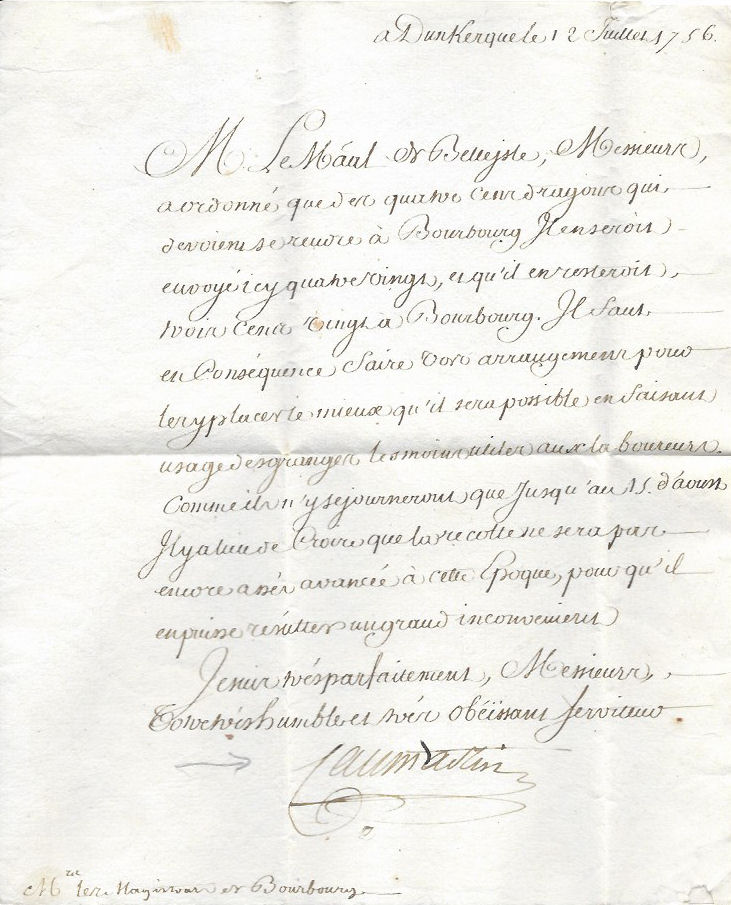 a Dunkerque le 12 Juillet 1756.
M Le Mâal de Belleysle, Messieurs,
a ordonné que des quatre cens dragons qui
devoient se rendre à Bourbourg Il en seroit
envoyé icy quatre vingt, et qu'il en resteroit
trois cens vingt a Bourbourg. Il faut
en Conséquence faire vos arrangemens pour
les y placer le mieux qu'il sera possible en faisant
usage des granges les moins utiles aux laboureurs.
Comme ils n'y séjourneront que Jusqu'au 15. d'aoust
Il y a lieu de Croire que la recolte ne sera pas
encore assés avancée à cette Epoque, pour qu'il
en puisse résulter un grand inconvenient
Je suis très parfaitement, Messieurs,
Votre très humble et très obéissant serviteur
Caumartin
Mrs les Magistrats de Bourbourg